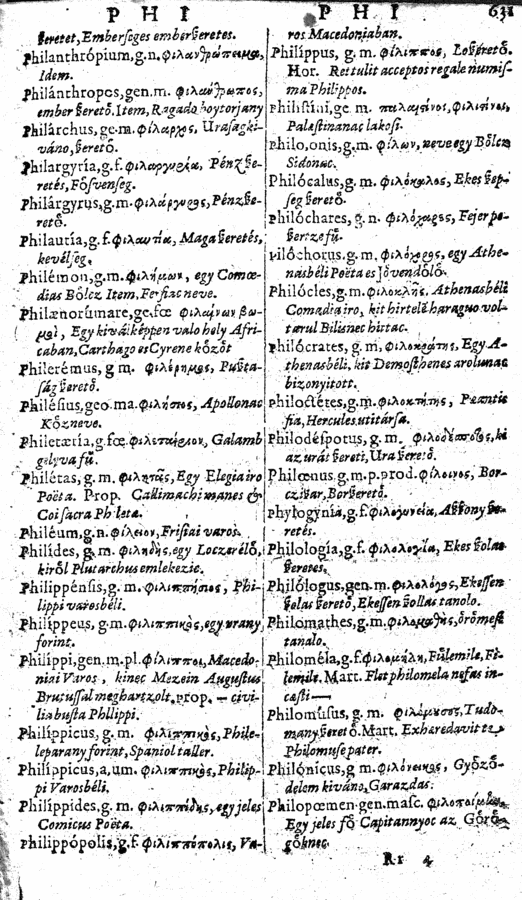 PHI
PHI 631
ßeretet, Emberseges emberßeretes.
Philanthrópium, g.n. φιλανθρώπευμα,
Idem.
Philánthropos, gen.m. φιλάνθρωπος,
ember ßerető. Item, Ragadó boytorjany
Philárchus, ge.m. φίλαρχος, Urasagki-
váno, ßeretö.
Philargyría, g.f. φιλαργυρία, Pénz ße-
retés, Fösvenseg.
Philárgyrus, g.m. φιλάργυρος, Pénzße-
retö.
Philautía, g.f. φιλαυτία, Maga ßeretés,
kevélseg.
Philémon, g.m. φιλήμων, egy Comœ-
dias Bölcz. Item, Fersiac neve.
Philænorúmaræ, ge.fœ φιλαίνων βω-
μοὶ, Egy kiváltképpen valo hely Afri-
caban, Carthago es Cyrene közöt
Philerémus, g m. φιλέρημος, Pußta-
ság ßeretö.
Philésius, geo.ma. φιλήσιος, Apollonac
Közneve.
Philetæría, g.fœ. φιλεταίριον, Galamb
gelyva fű.
Philétas, g.m. φιλητᾶς, Egy Elegiairo
Poëta. Prop. Callimachi manes &
Coi sacra Philetæ.
Philéum, g.n. φίλειον, Frisiai varos.
Philídes, g.m. φιληδὴς, egy Loczerélö,
kiröl Plutarchus emlekezic.
Philippénsis, g.m. φιλιππήσιος, Phi-
lippi varosbéli.
Philíppeus, g.m. φιλιππικὸς, egy arany
forint.
Philíppi, gen.m.pl. φίλιπποι, Macedo-
niai Varos, kinec Mezein Augustus
Brutussal meghartzolt, prop. — civi-
lia busta Philippi.
Philíppicus, g.m. φιλιππικὸς, Phile-
leparany forint, Spaniol taller.
Philíppicus, a, um. φιλιππικὸς, Philip-
pi Varosbéli.
Philíppides, g.m. φιλιππίδης, egy jeles
Comicus Poëta.
Philippópolis, g.f. φιλιππόπολις, Va-
ros Macedoniaban.
Philíppus, g.m. φίλιππος, Lo ßeretö.
Hor. Rettulit acceptos regale numis-
ma Philippos.
Philistíni, ge m. παλαιστίνος, φιλιστίνος,
Palæstinanac lakosi.
Philo, onis, g.m. φίλων, neve egy Bölcz
Sidonac.
Philócalus, g.m. φιλόκαλος, Ekes ßep-
seg ßeretö.
Philóchares, g.n. φιλόχαρες, Fejer pe-
ßertze fű.
Philóchorus, g.m. φιλόχορος, egy Athe-
násbéli Poëta es Jövendölö.
Philócles, g.m. φιλοκλῆς, Athenasbéli
Comœdiairo, kit hirtelé haraguo vol-
tarul Bilisnec hittac.
Philócrates, g.m. φιλοκράτης, Egy A-
thenasbéli, kit Demosthenes arolunac
bizonyitott.
Philoctétes, g.m. φιλοκτήτης, Pæantis
fia, Hercules utitársa.
Philodéspotus, g.m. φιλοδέσποτος, ki
az urát ßereti, Ura ßeretö.
Philœnus, g.m. p.prod. φίλοινος, Bor-
czißar, Borßeretö.
Phylogynía, g.f. φιλογυνεία, Aßßony ße-
retés.
Philología, g.f. φιλολογία, Ekes ßolas
ßeretes.
Philólogus, gen.m. φιλολόγος, Ekessen
ßolas ßeretö, Ekessen ßollas tanolo.
Philomathes, g.m. φιλομαθὴς, örömest
tanalo.
Philoméla, g.f. φιλομήλη, Fülemile, Fi-
lemile. Mart. Flet philomela nefas in-
cæsti—
Philomúsus, g.m. φιλόμουσος, Tudo-
many ßeretö. Mart. Exhæredavit te
Philomuse pater.
Philónicus, g m. φιλόνεικος, Györö-
delem kiváno, Garazdas.
Philopœmen gen.masc. φιλοποίμην.
Egy jeles fö Capitannyoc az Görö-
göknec.
Rr 4